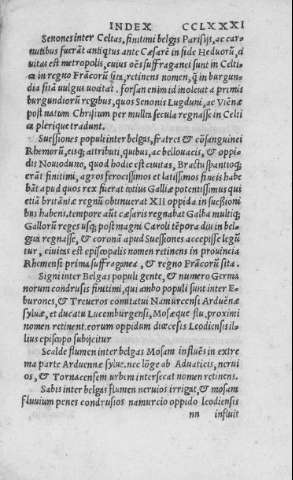 INDEX CCLXXXI
Senones inter Celtas, finitimi belgis Parisijs, ac car-
nutibus fuerãt antiqtus ante Cæsarẽ in fide Heduorũ, ci
uitas est metropolis, cuius oẽs suffraganei sunt in Celti-
ca in regno Frãcorũ sita, retinens nomen, q̃ in burgun-
dia sita uulgui uocitat. forsan enim id inoleuit a primis
burgundiorũ regibus, quos Senonis Lugduni, ac Viẽnæ
post natum Christum per multa secula regnasse in Celti
ca plerique tradunt.
Suessiones populi inter belgas, fratres & cõsanguinei
Rhemorũ, eisq; attributi, quibus, ac bellouacis, & oppi-
dis Nouioduno, quod hodie est ciuitas, Bratisspantioq;
erãt finitimi, agros ferocissimos et latissimos fineis habe
bãt apud quos rex fuerat totius Galliæ potentissimus qui
etiã britaniæ regnũ obtinuerat XII oppida in suessioni
bus habens. tempore aũt cæsaris regnabat Galba multiq;
Gallorũ reges usq; post magni Caroli tẽpora diu in bel-
gai regnasse, & coronã apud Suessones accepisse legũ
tur, ciuitas est episcopalis nomen retinens in prouincia
Rhemensi prima suffraganea, & regno Frãcorũ sita.
Signi inter Belgas populi gente, & numero Germa
norum condrusis finitimi, qui ambo populi sunt inter E-
burones, & Treueros comitatui Namurcensi Arduẽnæ
syluæ, et ducatu Lucemburgensi, Mosæque flu, proximi
nomen retinent. eorum oppidum diœcesis Leodiensis il-
lius episcopo subijcitur
Scalde flumen inter belgas Mosam influẽs in extre
ma parte Arduennæ syluæ. nec lõge ab Aduaticis, nerui
os, & Tornacensem urbem intersecat nomen retinens.
Sabis inter belgas flumen neruios irrigat, & mosam
fluuium penes condrusios namurcio oppido leodiensis
nn influit